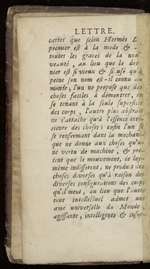 LETTRE.
certer que selon Hermés le
premier est à la mode &
traîne les graces de la nou-
veauté, au lieu que le der-
nier est si vieux & si usé qu'à
peine son nom est-il connu au
monde, l'un ne propose que des
choses faciles à démontrer, en
se tenant à la seule superficie
des corps, l'autre plus abstrait
ne s'attache qu'à l'essence inte-
rieure des choses; enfin l'un se
se renfermant dans la mechani-
que ne donne aux choses qu'u-
ne vertu de machine, & pre-
tend que le mouvement, de luy-
même indifferent, ne produit des
choses diverses qu'à raison des
diverses configurations des corps
qu'il meut, au lieu que l'autre
tout intellectuel admet une
ame universelle du Monde
agissante, intelligente &